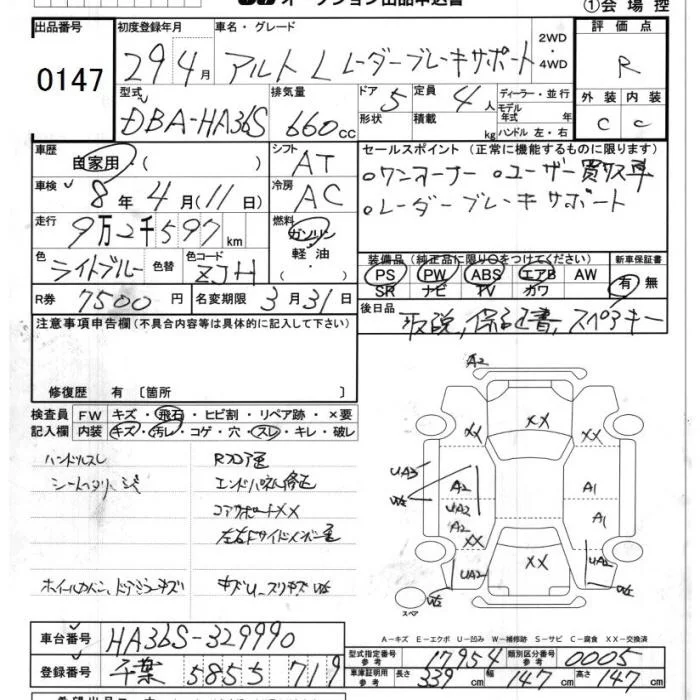 オークション出品申込書
①会場控
出品番号 0147
初度登録年月 29 4月
車名・グレード アルト L レーダーブレーキサポート 2WD・4WD
評価点 R
外装 内装
C C
型式 DBA-HA36S
排気量 660cc
ドア 5
形状
定員 4人
積載 kg
ディーラー・並行
モデル年式 年式
ハンドル 左・右
車歴 自家用・( )
シフト AT
車検 8年4月(11日)
冷房 AC
走行 9万2千597km
燃料 ガソリン 軽油 ・( )
色 ライトブルー 色替
色コード ZJH
R券 7500円
名変期限 3月31日
セールスポイント (正常に機能するものに限ります)
○ワンオーナー ○ユーザー買取車
○レーダーブレーキサポート
装備品 (純正品に限り○をつけてください)
PS PW ABS エアB AW
SR ナビ TV カワ
新車保証書
有・無
後日品 取説, 保証書, スペアキー
注意事項申告欄 (不具合内容等は具体的に記入して下さい)
修復歴 有 〔箇所 〕
検査員記入欄
FW キズ・飛石・ヒビ割・リペア跡・×要
内装 キズ・汚レ・コゲ・穴・スレ・キレ・破レ
ハンドルスレ
エンドパネル修正
コアサポートXX
A2
XX
XX XX
UA3
A2 A1
UA2
A2 A1
XX XX
UA2 UA2
スペア
A-キズ E-エクボ U-凹み W-補修跡 S-サビ C-腐食 XX-交換済
車台番号 HA36S-329990
登録番号 千葉 5855 719
型式指定番号 参考 17954
類別区分番号 参考 0005
車庫証明用 参考 長さ 339cm 幅 147cm 高さ 147cm